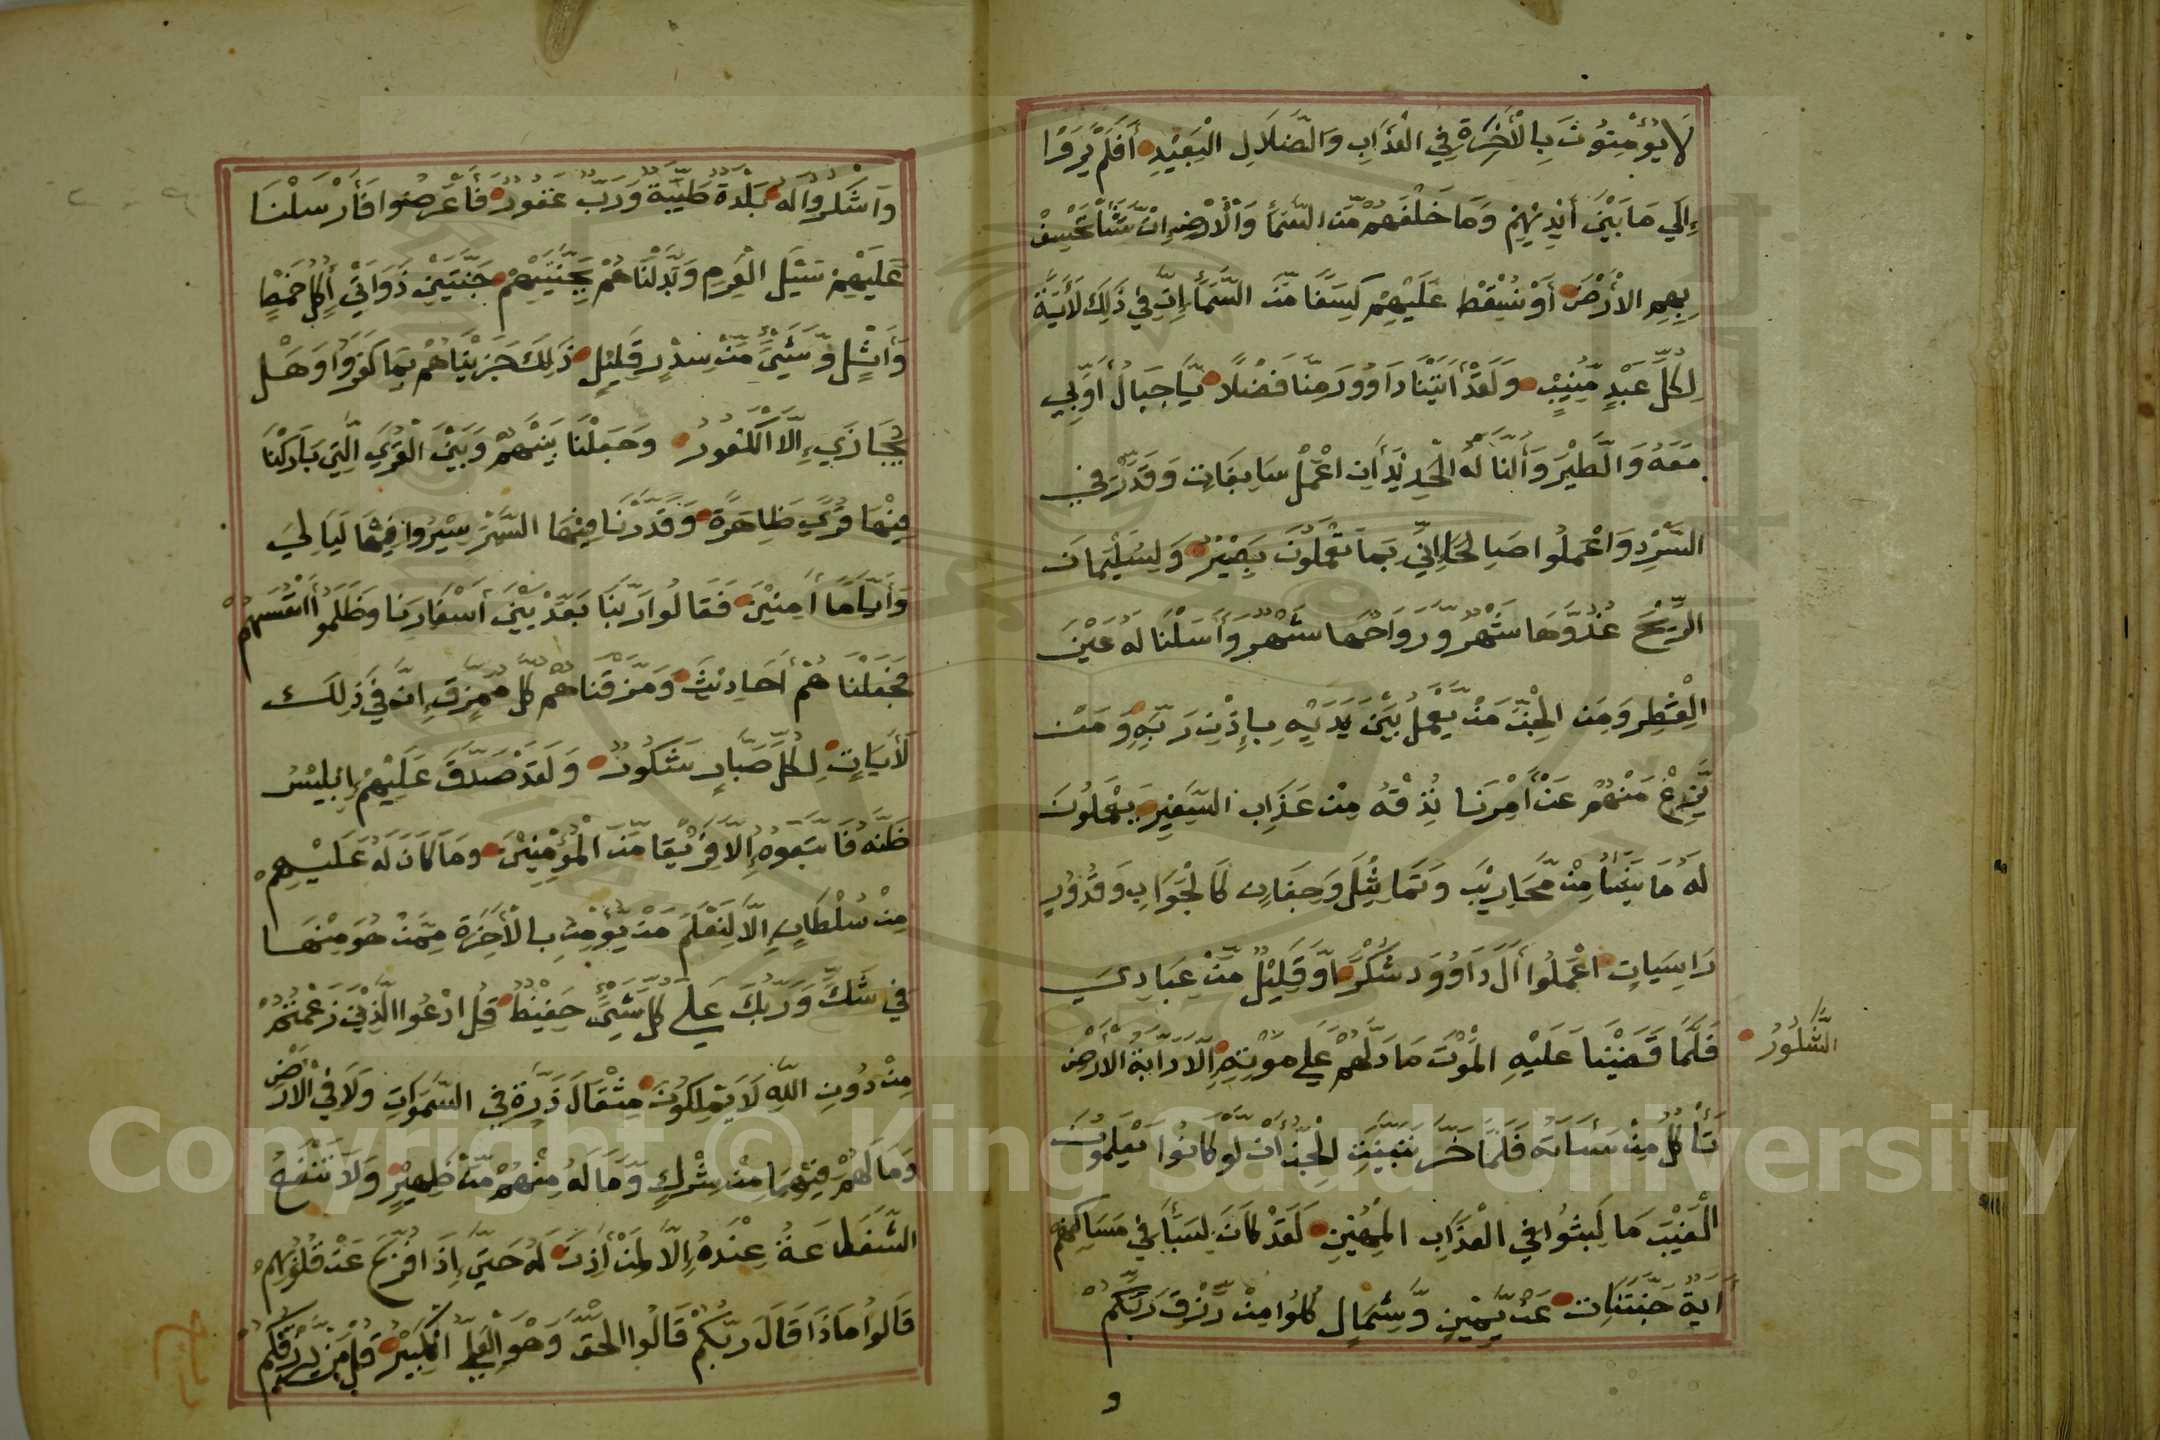 لَا يُؤْمِنُونَ بِالْأَخِرَةِ فِي الْعَذَابِ وَالضَّلَالِ الْبَعِيْدِ أَفَلَمْ يَرَوْا
إِلَي مَا بَيْنَ أَيْدِيْهِمْ وَمَا خَلْفَهُمْ مِّنَ السَّمَاۤ وَالْأَرْضِ إِنْ نَّشَأْ نَخْسِفْ
بِهِمِ الْأَرْضَ أَوْ نُسْقِطْ عَلَيْهِمْ كِسَفًا مِّنَ السَّمَاۤ إِنَّ فِي ذَلِكَ لَأَيَةً
لِكُلِّ عَبْدٍ مُّنِيْبٍ وَلَقَدْ أَتَيْنَا دَاوُودَ مِنَّا فَضْلًا يَّا جِبَالُ أَوِّبِي
مَعَهُ وَالطَّيْرَ وَأَلَنَّا لَهُ الْحَدِيْدَ أَنِ اعْمَلْ سَابِغَاتٍ وَقَدِّرْ فِي
السَّرْدِ وَاعْمَلُوا صَالِحًا إِنِّي بِمَا تَعْمَلُوْنَ بَصِيْرٌ وَلِسُلَيْمَانَ
الرِّيْحَ غُدُوُّهَا شَهْرٌ وَّرَوَاحُهَا شَهْرٌ وَأَسَلْنَا لَهُ عَيْنَ
الْقِطْرِ وَمِنَ الْجِنِّ مَنْ يَّعْمَلُ بَيْنَ يَدَيْهِ بِإِذْنِ رَبِّهِ وَمَنْ
يَّزِغْ مِنْهُمْ عَنْ أَمْرِنَا نُذِقْهُ مِنْ عَذَابِ السَّعِيْرِ يَعْمَلُوْنَ
لَهُ مَا يَشَاۤءُ مِنْ مَّحَارِيْبَ وَتَمَاثِيْلَ وَجِفَانٍ كَالْجَوَابِ وَقُدُوْرٍ
رَاسِيَاتٍ اعْمَلُوا أَلَ دَاوُوْدَ شُكْرًا وَّقَلِيْلٌ مِّنْ عِبَادِيَ
الشَّكُوْرُ
فَلَمَّا قَضَيْنَا عَلَيْهِ الْمَوْتَ مَا دَلَّهُمْ عَلَي مَوْتِهِ إِلَّا دَابَّةُ الْأَرْضِ
تَأْكُلُ مِنْسَأَتَهُ فَلَمَّا خَرَّ تَبَيَّنَتِ الْجِنُّ أَنْ لَّوْ كَانُوا يَعْلَمُوْنَ
الْغَيْبَ مَا لَبِثُوا فِي الْعَذَابِ الْمُهِيْنِ لَقَدْ كَانَ لِسَبَأٍ فِي مَسَاكِنِهِمْ
أَيَةٌ جَنَّتَانِ عَنْ يَّمِيْنٍ وَّشِمَالٍ كُلُوا مِنْ رِّزْقِ رَبِّكُمْ
و
وَاشْكُرُوْا لَهُ بَلْدَةٌ طَيِّبَةٌ وَّرَبٌّ غَفُوْرٌ فَأَعْرَضُوا فَأَرْسَلْنَا
عَلَيْهِمْ سَيْلَ الْعَرِمِ وَبَدَّلْنَاهُمْ بِجَنَّتَيْهِمْ جَنَّتَيْنِ ذَوَاتَيْ أُكُلٍ خَمْطٍ
وَأَثْلٍ وَّشَيْءٍ مِّنْ سِدْرٍ قَلِيْلٍ ذَلِكَ جَزَيْنَاهُمْ بِمَا كَفَرُوْا وَهَلْ
يُجَازَي إِلَّا الْكَفُوْرُ وَجَعَلْنَا بَيْنَهُمْ وَبَيْنَ الْقُرَي الَّتِي بَارَكْنَا
فِيْهَا قُرًي ظَاهِرَةً وَّقَدَّرْنَا فِيْهَا السَّيْرَ سِيْرُوا فِيْهَا لَيَالِيَ
وَأَيَّامًا أَمِنِيْنَ فَقَالُوا رَبَّنَا بَعِّدْ بَيْنَ أَسْفَارِنَا وَظَلَمُوْا أَنْفُسَهُمْ
فَجَعَلْنَاهُمْ أَحَادِيْثَ وَمَزَّقْنَاهُمْ كُلَّ مُمَزَّقٍ إِنَّ فِي ذَلِكَ
لَأَيَاتٍ لِكُلِّ صَبَّارٍ شَكُوْرٍ وَلَقَدْ صَدَّقَ عَلَيْهِمْ إِبْلِيْسُ
ظَنَّهُ فَاتَّبَعُوْهُ إِلَّا فَرِيْقًا مِّنَ الْمُؤْمِنِيْنَ وَمَا كَانَ لَهُ عَلَيْهِمْ
مِنْ سُلْطَانٍ إِلَّا لِنَعْلَمَ مَنْ يُّؤْمِنُ بِالْأَخِرَةِ مِمَّنْ هُوَ مِنْهَا
فِي شَكٍّ وَرَبُّكَ عَلَي كُلِّ شَيْءٍ حَفِيْظٌ قُلِ ادْعُوا الَّذِيْنَ زَعَمْتُمْ
مِنْ دُوْنِ اللَّهِ لَا يَمْلِكُوْنَ مِثْقَالَ ذَرَّةٍ فِي السَّمَوَاتِ وَلَا فِي الْأَرْضِ
وَمَا لَهُمْ فِيْهِمَا مِنْ شِرْكٍ وَّمَا لَهُ مِنْهُمْ مِّنْ ظَهِيْرٍ وَلَا تَنْفَعُ
الشَّفَاعَةُ عِنْدَهُ إِلَّا لِمَنْ أَذِنَ لَهُ حَتَّي إِذَا فُزِّعَ عَنْ قُلُوْبِهِمْ
قَالُوا مَاذَا قَالَ رَبُّكُمْ قَالُوا الْحَقَّ وَهُوَ الْعَلِيُّ الْكَبِيْرُ قُلْ مَنْ يَّرْزُقُكُمْ
Copyright © King Saud University
1957